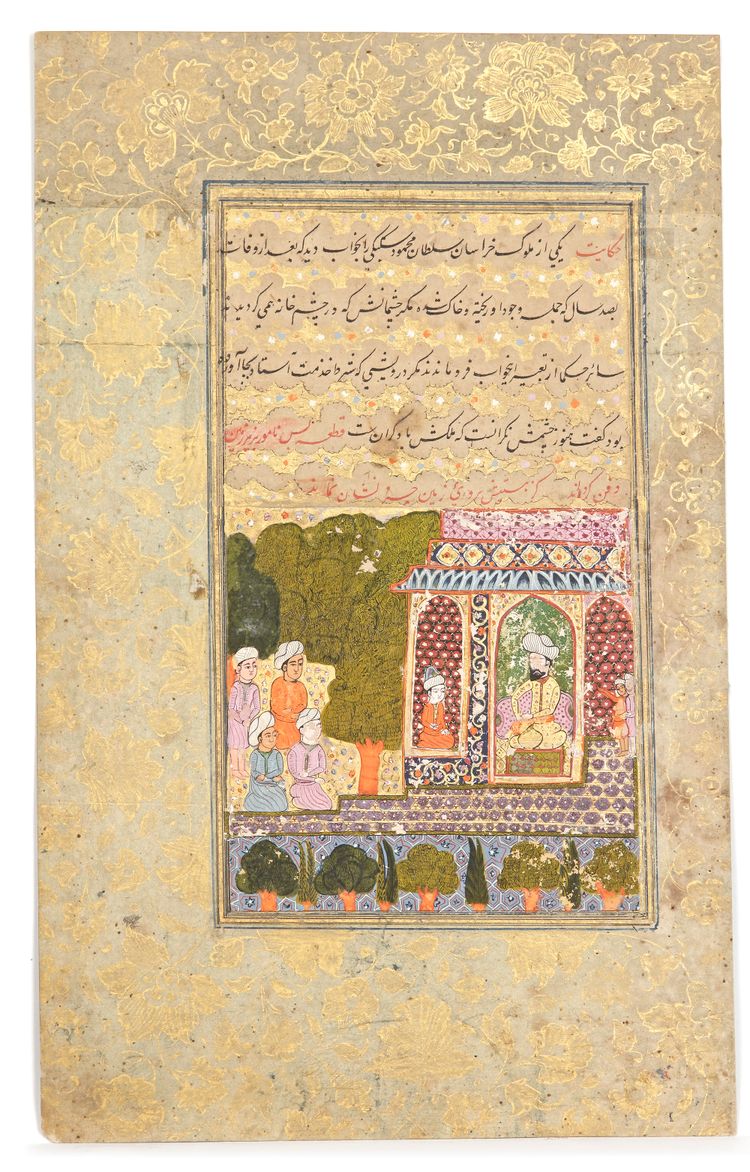 حکایت یکی از ملوک خراسان سلطان محمود سبکتگین را بخواب دید که بعد از وفات
بصد سال که جمله وجود او ریخته و خاک شده مگر چشمانش که در چشم خانه همی گردیدند
سائر حکما از تعبیر این خواب فرو ماندند مگر درویشی که شرط خدمت استاد بجا آورده
بود گفت هنوز چشمش نگرانست که ملکش با دگران ست قطعه بس نامور بزیر زمین
دفن کرده‌اند کز هستیش بروی زمین نشان نماند